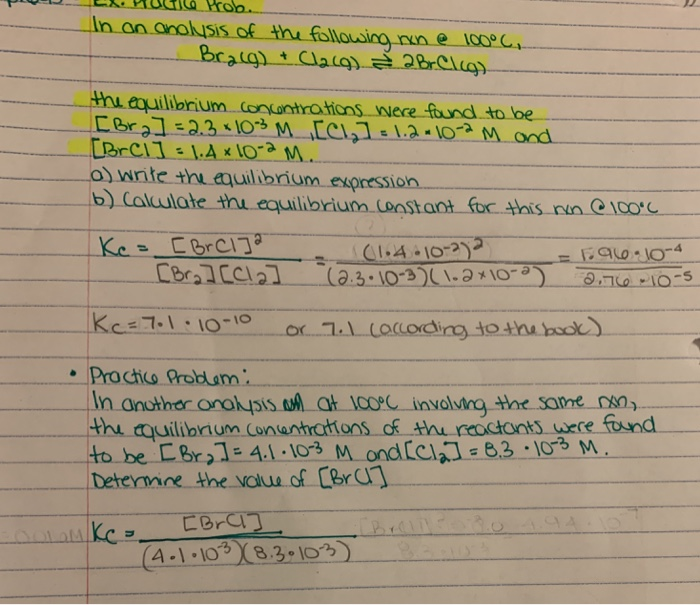 Ex. Practice Prob.
In an analysis of the following rxn @ 100°C,
Br₂(g) + Cl₂(g) ⇌ 2BrCl(g)
the equilibrium concentrations were found to be
[Br₂] = 2.3 × 10⁻³ M, [Cl₂] = 1.2 × 10⁻² M and
[BrCl] = 1.4 × 10⁻² M.
a) write the equilibrium expression
b) Calculate the equilibrium constant for this rxn @ 100°C
Kc = [BrCl]² / [Br₂][Cl₂] = (1.4 · 10⁻²)² / (2.3 · 10⁻³)(1.2 × 10⁻²) = 1.96 · 10⁻⁴ / 2.76 · 10⁻⁵
Kc = 7.1 · 10⁻¹⁰ or 7.1 (according to the book)
• Practice Problem:
In another analysis at 100°C involving the same rxn,
the equilibrium concentrations of the reactants were found
to be [Br₂] = 4.1 · 10⁻³ M and [Cl₂] = 8.3 · 10⁻³ M.
Determine the value of [BrCl]
Kc = [BrCl] / (4.1 · 10⁻³)(8.3 · 10⁻³)